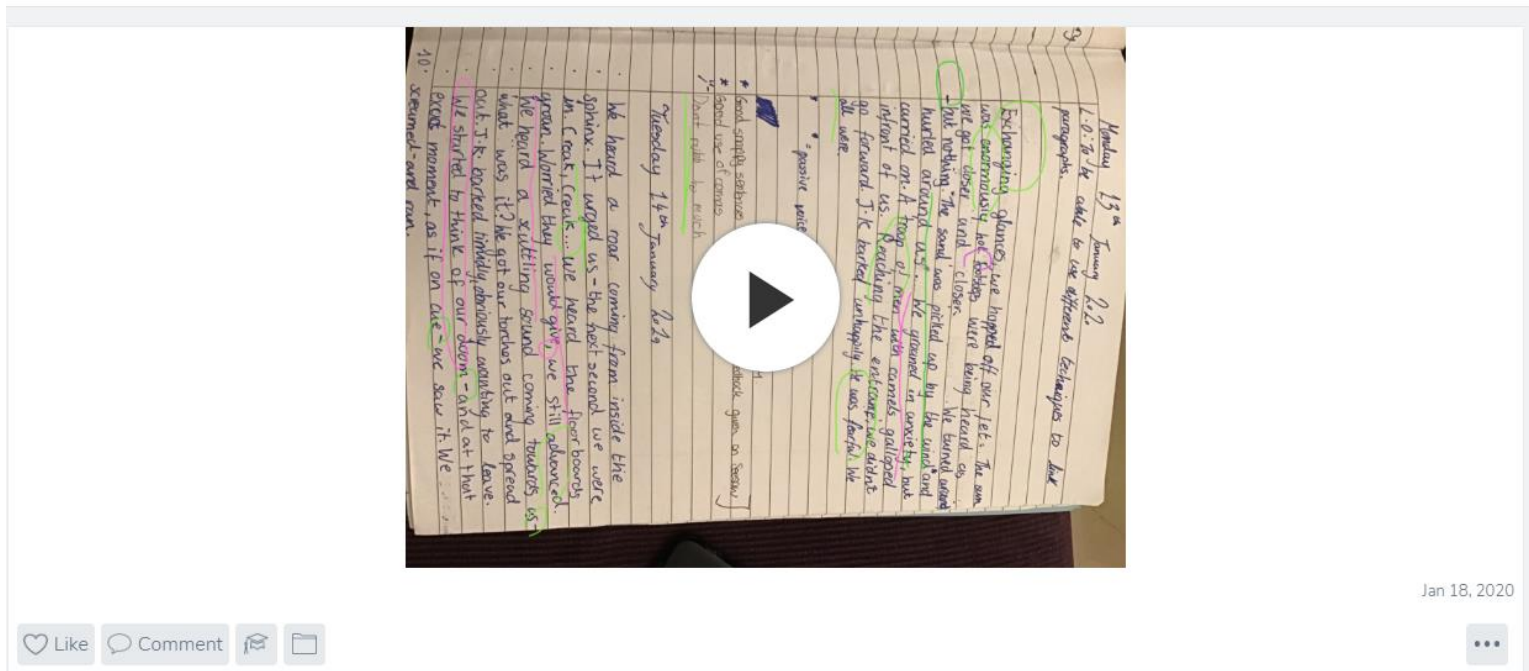 Monday 13th January 2020
L.O: To be able to use different techniques to link
paragraphs.
Exchanging glances, we hopped off our jet. The sun
was enormously hot. footsteps were being heard as
we got closer and closer. We turned around
- but nothing. "The sand was picked up by the wind" and
hurled around us. We groaned in anxiety, but
carried on. A troop of men with camels galloped
infront of us. Reaching the entrance, we didnt
go forward. J.K barked unhappily. He was fearful. We
all were.
* * = passive voice
* Good snappy sentences
* Good use of comas
Dont rubb to much
edback given on Seesaw]
Tuesday 14th January 2020
We heard a roar coming from inside the
sphinx. It urged us - the next second we were
in. Creak, Creak... We heard the floorboards
groan. Worried they would give, we still advanced.
We heard a scuttling sound coming towards us -
what was it? We got our torches out and spread
out. J.K. barked timidly, obviously wanting to leave.
We started to think of our doom - and at that
exact moment, as if on cue - we saw it. We
screamed - and ran.
10.
Jan 18, 2020
Like
Comment